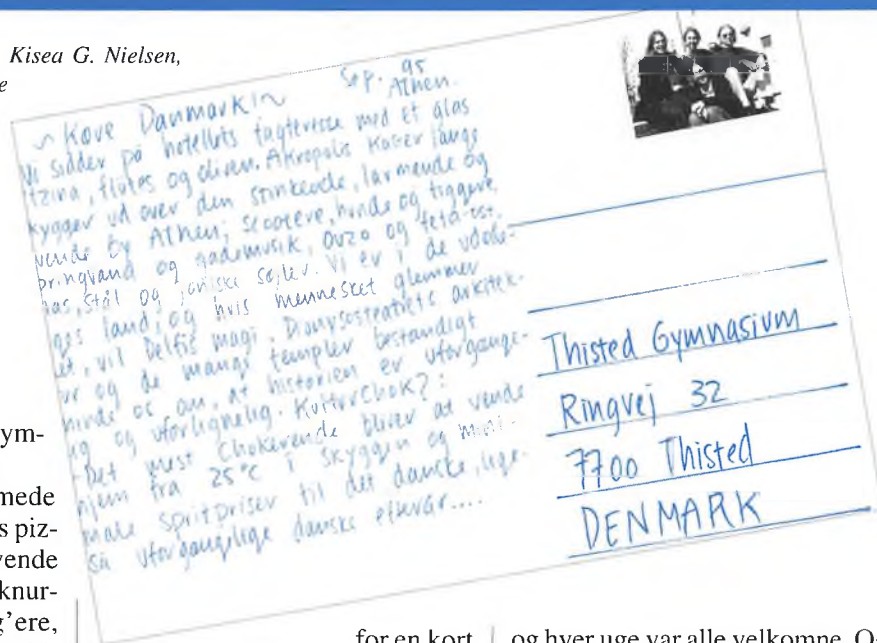 Kisea G. Nielsen,
e
Sep. 95
Athen.
~ Kære Danmark ~
Vi sidder på hotellets tagterrasse med et glas
tzina, flutes og oliven. Akropolis kaster lange
kygger ud over den stinkende, larmende og
vende by Athen; scootere, hunde og tiggere,
pringvand og gademusik, ouzo og feta-ost.
las, stål og joniske søjler. Vi er i de udøde-
ges land, og hvis mennesket glemmer
et, vil Delfis magi, Dionysosteatrets arkitek-
ur og de mange templer bestandigt
minde os om, at historien er uforgænge-
lig og uforlignelig. Kulturchok?:
-Det mest chokerende bliver at vende
hjem fra 25°C i skyggen og mini-
male spritpriser til det danske, lige-
så uforgængelige danske efterår....
Thisted Gymnasium
Ringvej 32
7700 Thisted
DENMARK
ym-
mede
s piz-
vende
knur-
g'ere,
for en kort
og hver uge var alle velkomne. O